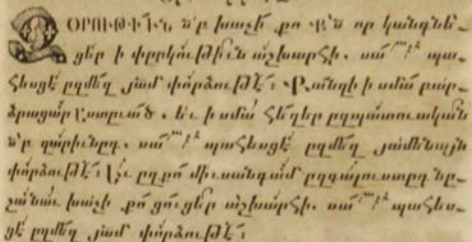 ԶՕՐՈՒԹԻ՟Ւն տ՟ր խաչի՟ քո Ք՟ս որ կանգնե-
ցեր ի փրկութի՟ւն աշխարհի. սա՟
պահեսցէ՛ զմեզ յա՟մ փորձութէ՟: Քանզի ի սմա՛ բար-
ձրացար Աստուած. եւ ի սմա՛ հեղեր զպատուական
տ՟ր զարիւնդ. սա՟ պահեսցէ զմեզ յամենայն
փորձութէ՟: Եւ զքո՛ միւսանգամ զգալուստդ նը-
շանաւ խաչի քո՛ ցուցեր աշխարհի. սա՟ պահես-
ցէ զմեզ յա՟մ փորձութէ՟: